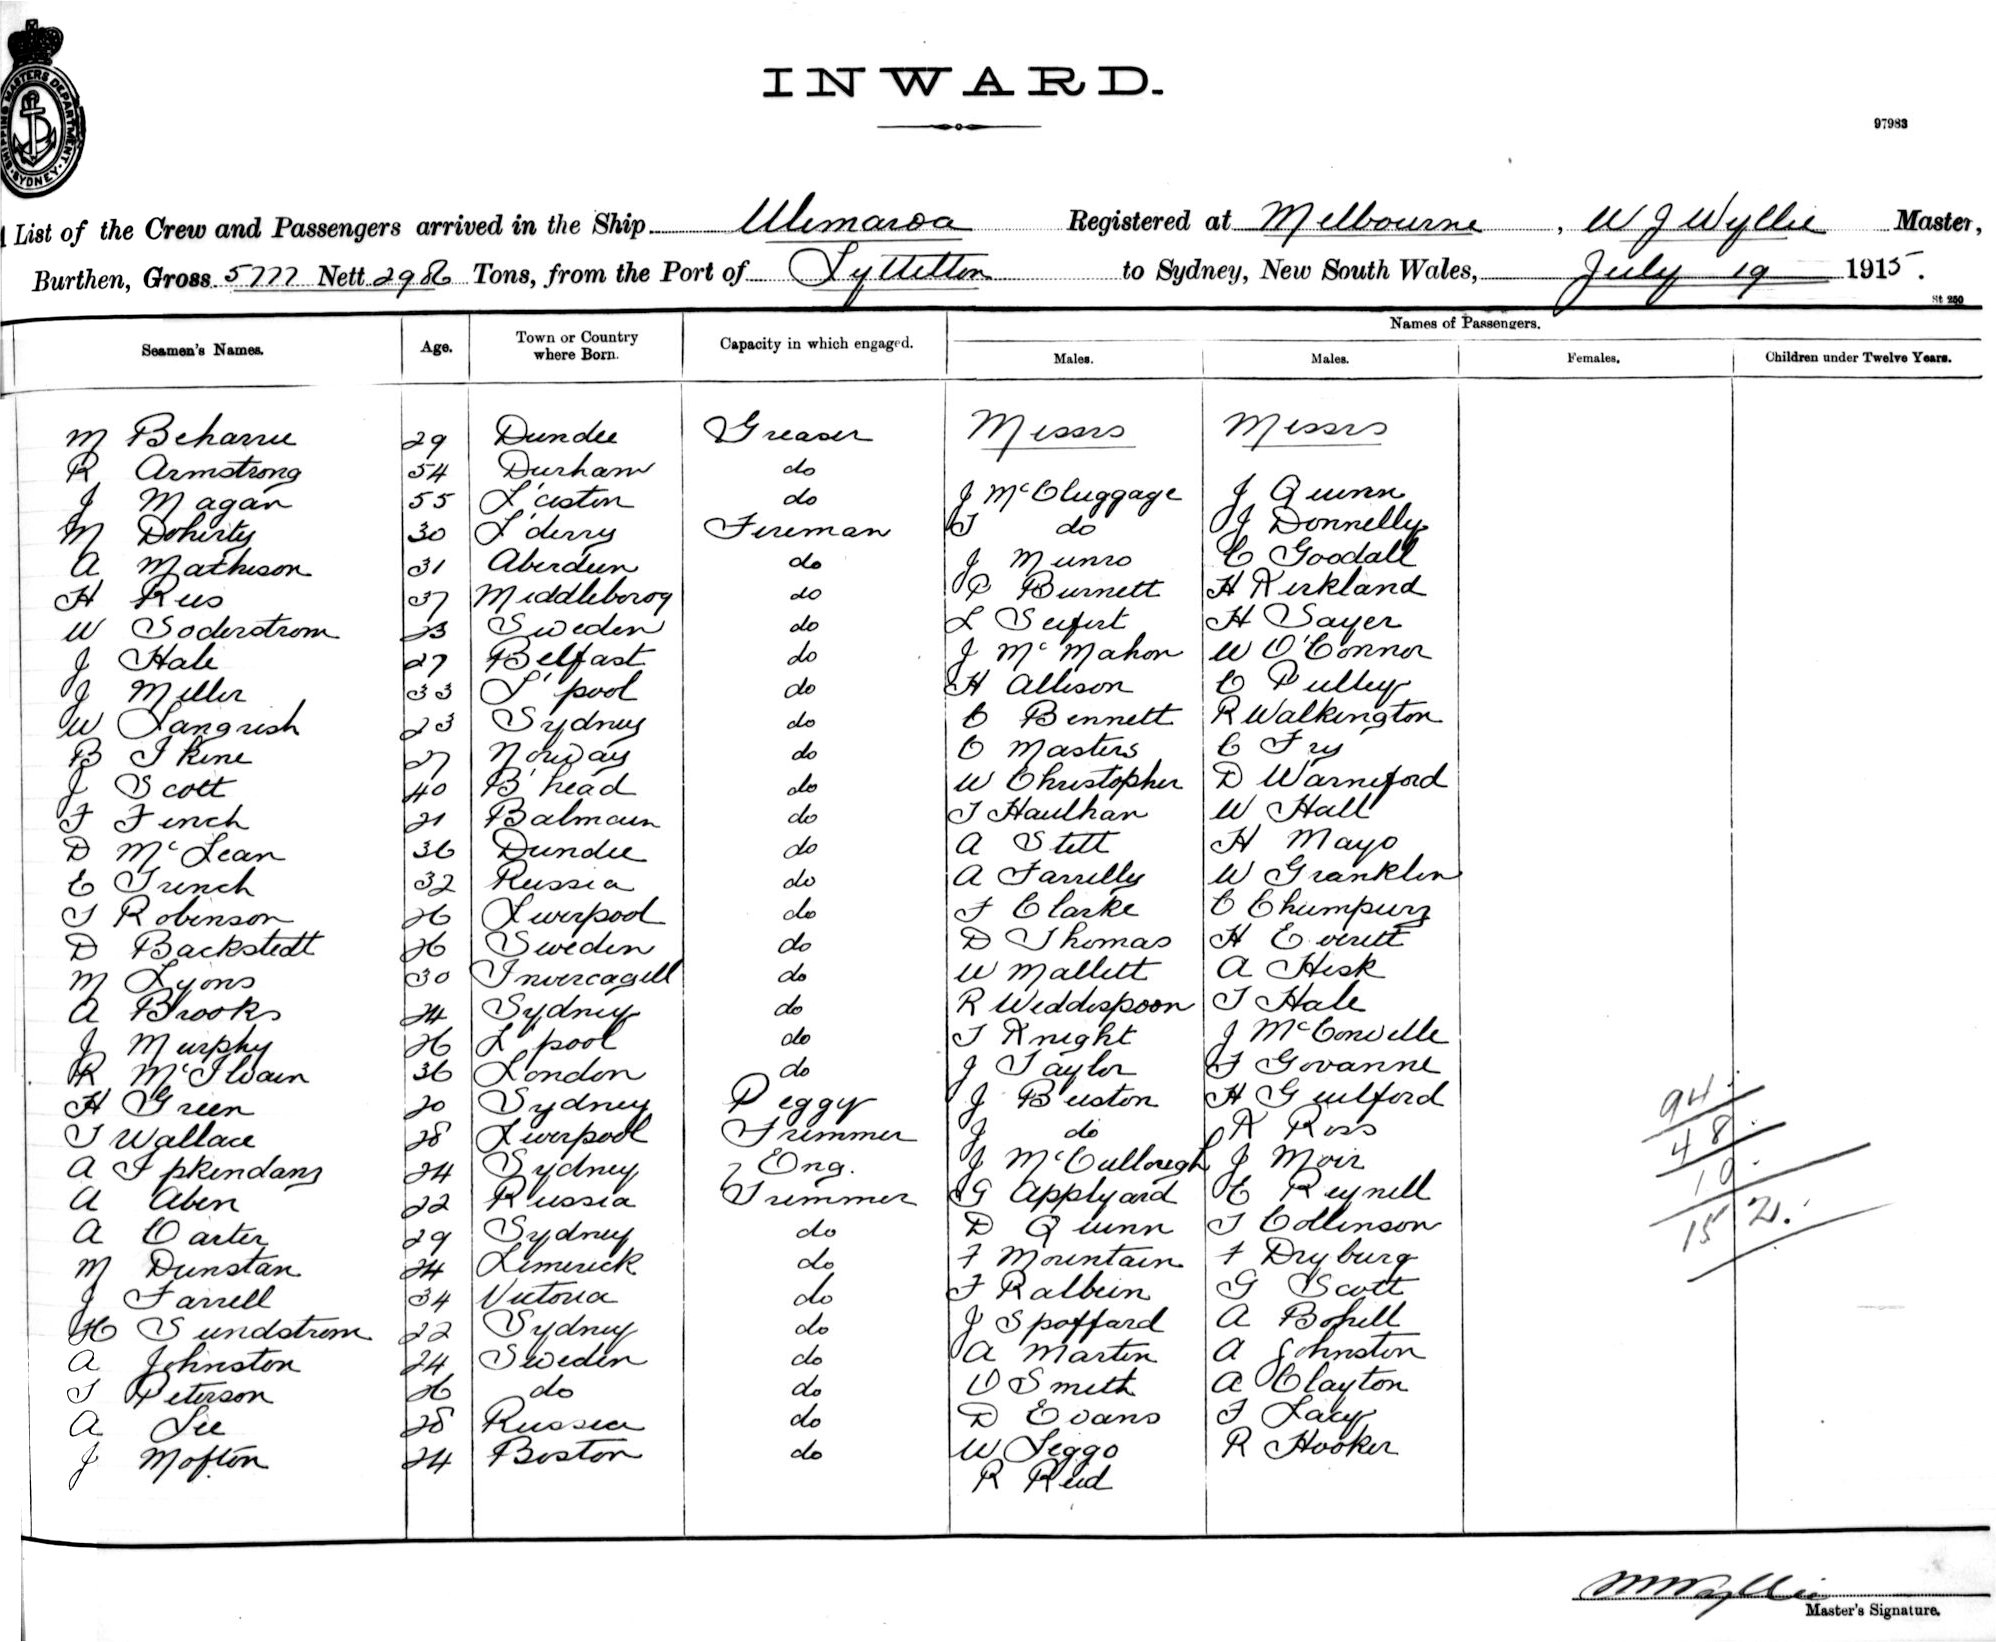 INWARD.
97983
SHIPPING MASTERS DEPARTMENT SYDNEY
List of the Crew and Passengers arrived in the Ship Ulimaroa Registered at Melbourne, W J Wyllie Master,
Burthen, Gross 5777 Nett 2986 Tons, from the Port of Lyttelton to Sydney, New South Wales, July 19 1915.
St 250
Seamen's Names. Age. Town or Country where Born. Capacity in which engaged. Names of Passengers.
Males. Males. Females. Children under Twelve Years.
M Beharrie 29 Dundee Greaser Messrs Messrs
R Armstrong 54 Durham do
J Magan 55 L'ceston do J McCluggage J Quinn
M Doherty 30 L'derry Fireman T do J Donnelly
A Mathison 31 Aberdeen do J Munro C Goodall
H Rus 37 Middleboro do P Burnett H Kirkland
W Soderstrom 23 Sweden do L Seifert H Sayer
J Hale 27 Belfast do J McMahon W O'Connor
J Miller 33 L'pool do H Allison C Pulley
W Langrish 23 Sydney do C Bennett R Walkington
B 27 Norway do O Masters C Fry
J Scott 40 B'head do W Christopher D Warneford
F Finch 21 Balmain do T Haulhan W Hall
D McLean 36 Dundee do A Stett H Mayo
E French 32 Russia do A Farrelly W Granklin
T Robinson 26 Liverpool do F Clarke C
D Backstedt 26 Sweden do D Thomas H Everett
M Lyons 30 Invercagill do W Mallett A Hisk
A Brooks 24 Sydney do R Weddespoon T Hale
J Murphy 26 L'pool do T Knight J McConville
R McIlvain 36 London do J Taylor F Govanne
H Green 20 Sydney Peggy J Buston H Guilford
T Wallace 28 Liverpool Trimmer J do K Ross
A 24 Sydney Eng. J McCullough J Moir
A Aben 22 Russia Trimmer G Applyard C Reynell
A Carter 29 Sydney do D Quinn T Collinson
M Dunstan 24 Limerick do F Mountain F Dryburg
J Farrell 34 Victoria do F Ralbein G Scott
H Sundstrom 22 Sydney do J Spoffard A Bohill
A Johnston 24 Sweden do A Martin A Johnston
T Peterson 26 do do D Smith A Clayton
A Lee 28 Russia do D Evans F Lacy
J Mofton 24 Boston do W Leggo R Hooker
R Reid
94
48
10
152
W J Wyllie
Master's Signature.